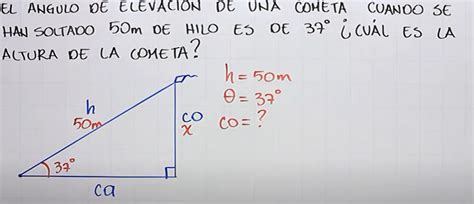 EL ANGULO DE ELEVACIÓN DE UNA COMETA CUANDO SE
HAN SOLTADO 50m DE HILO ES DE 37° ¿CUÁL ES LA
ALTURA DE LA COMETA?
h = 50m
θ = 37°
co = ?
h
50m
co
x
37°
ca